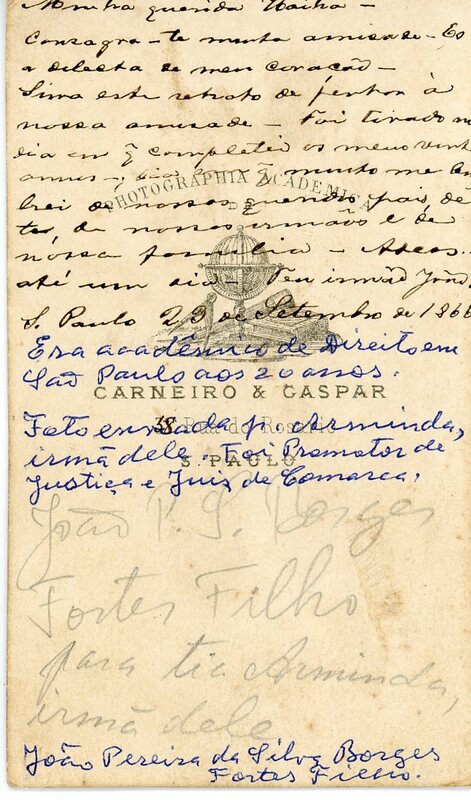 Minha querida
Consagra-te muita amisade - Es
a dilecta de meu coração -
Sirva este retrato de penhor á
nossa amisade - Foi tirado no
dia em q̃ completei os meus vinte
annos - dia em q̃ muito me lem
brei de nossos queridos pais, de
ti, de nossos irmãos e de
nossa familia - Adeos -
até um dia - Teu irmão João.
S. Paulo 23 de Setembro de 1866
PHOTOGRAPHIA ACADEMICA
DE
Era acadêmico de Direito em
São Paulo aos 20 anos.
CARNEIRO & GASPAR
38 Rua do Rosario
Foto enviada p. Arminda,
irmã dele. Foi Promotor de
S. PAULO
Justiça e Juis de Comarca.
João P. S. Borges
Fortes Filho
para tia Arminda,
irmã dele
João Pereira da Silva Borges
Fortes Filho.